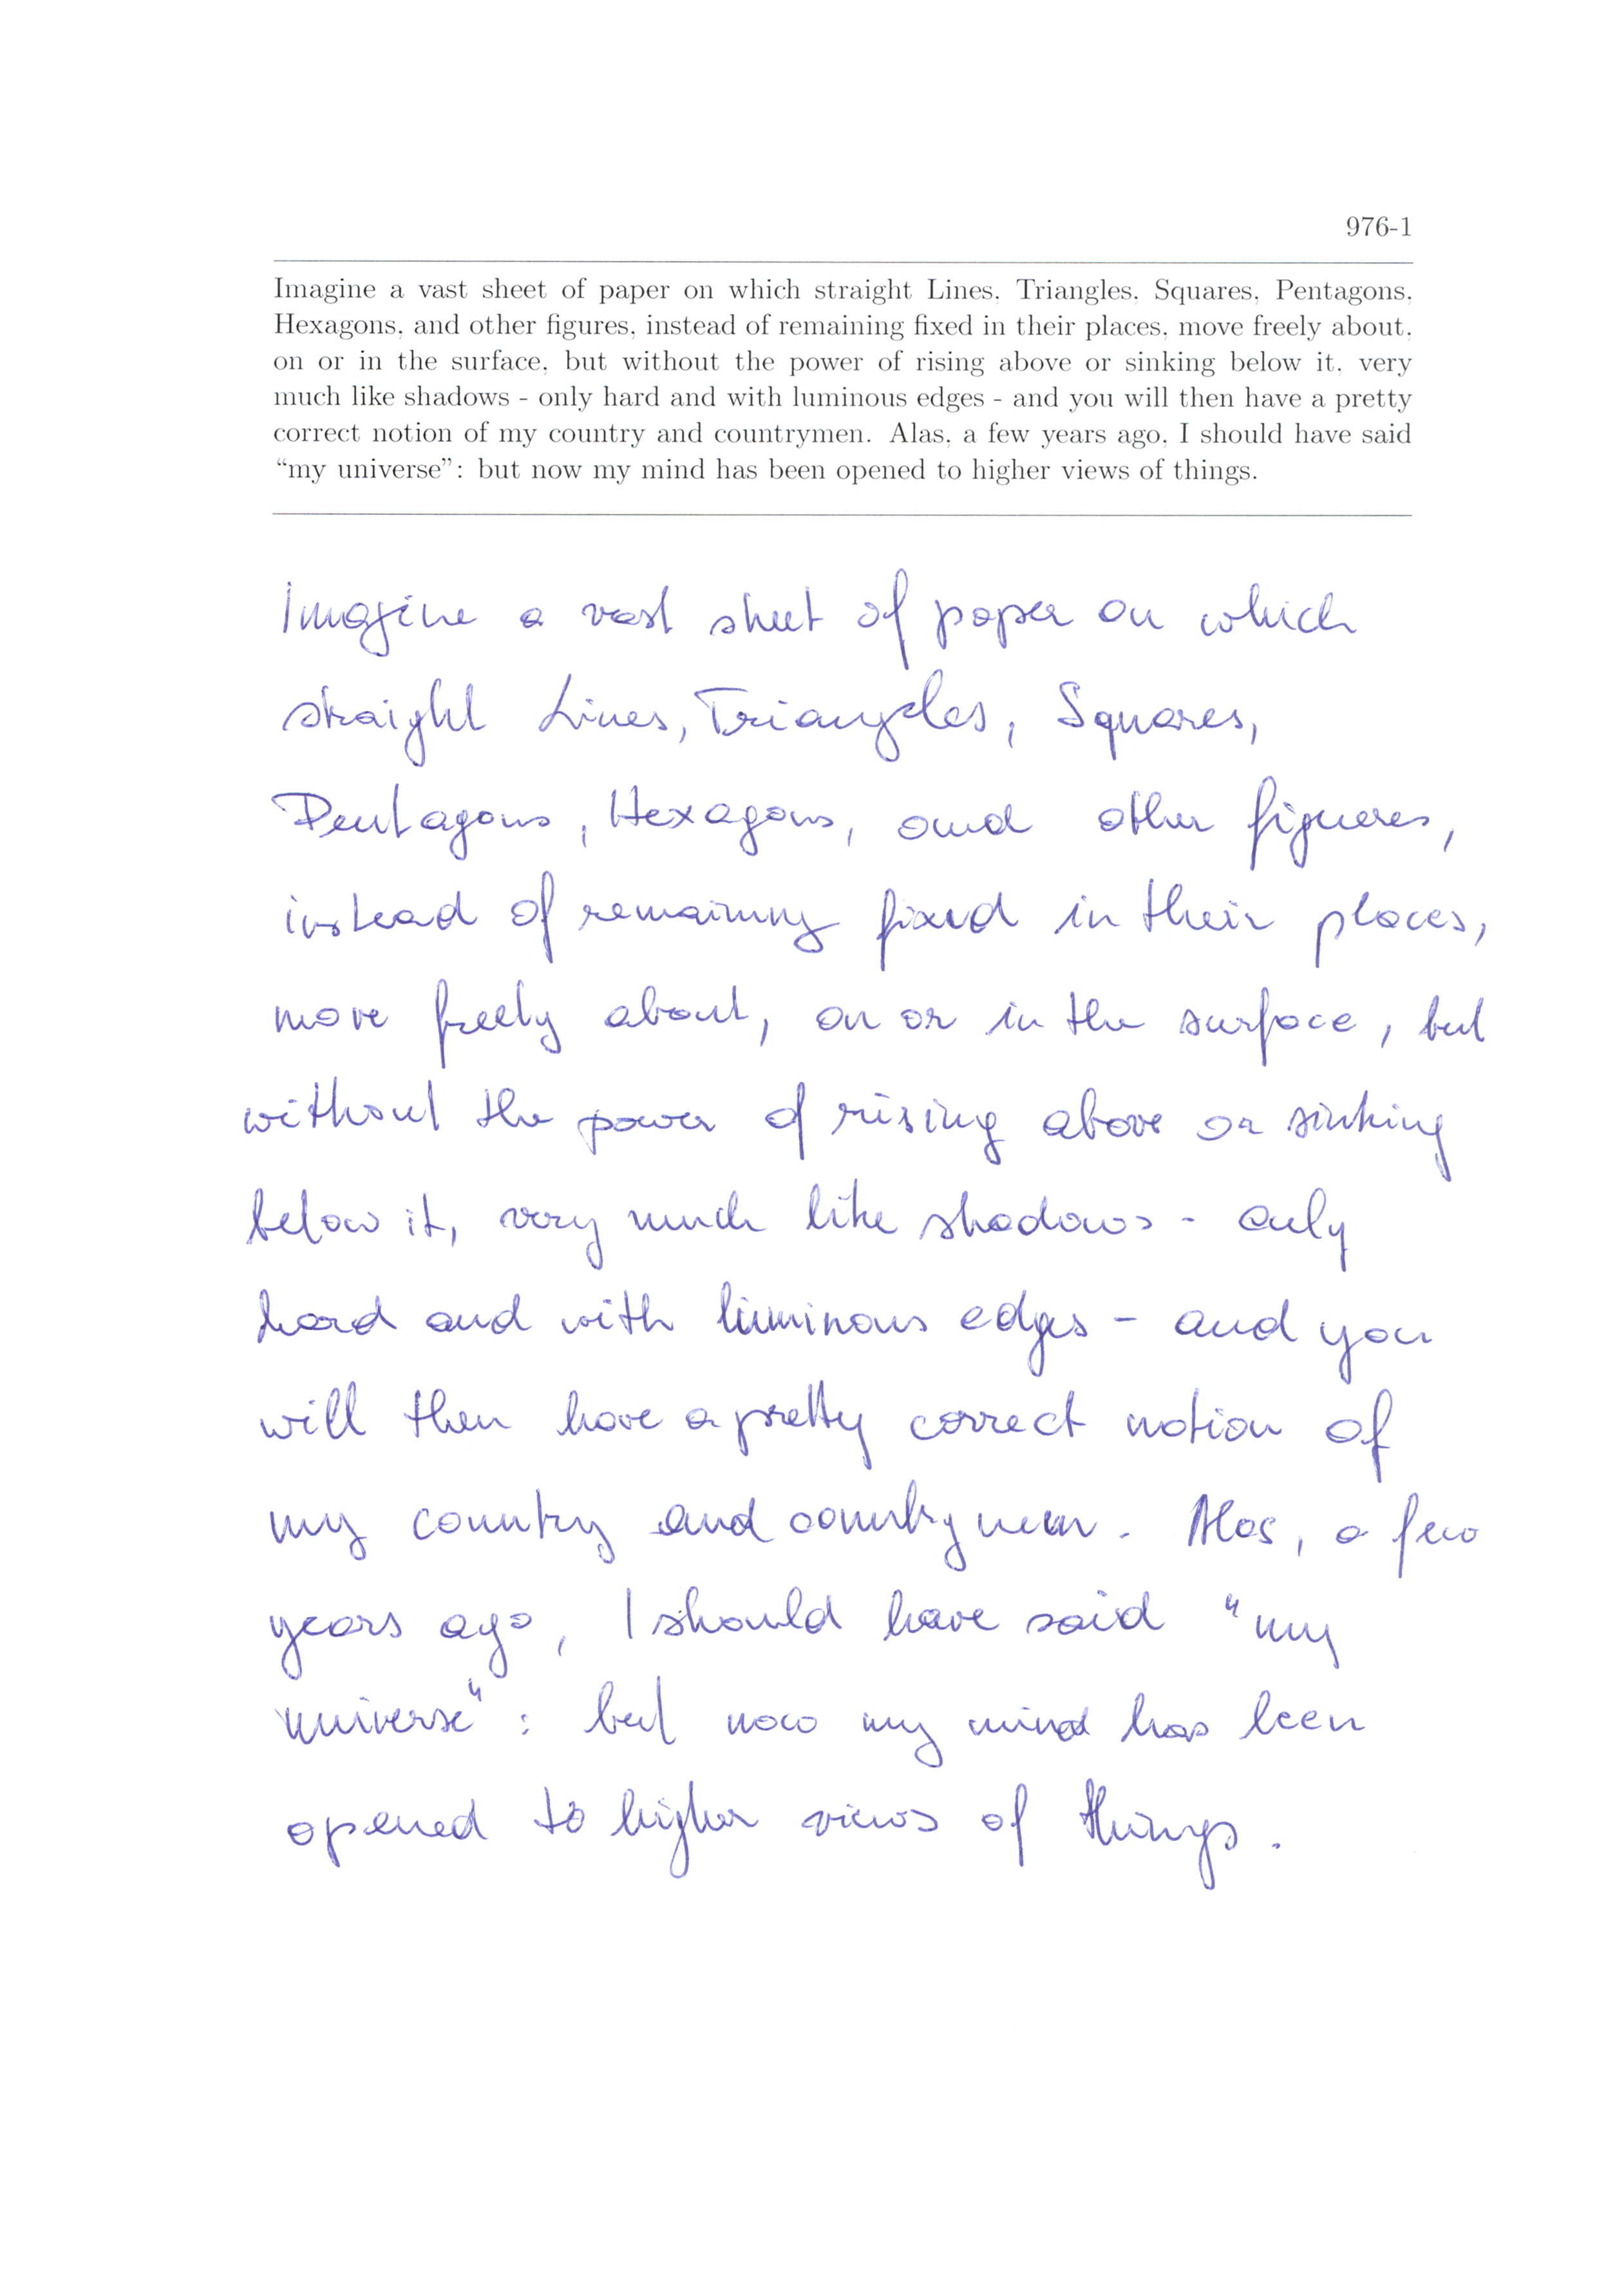 976-1
Imagine a vast sheet of paper on which straight Lines, Triangles, Squares, Pentagons,
Hexagons, and other figures, instead of remaining fixed in their places, move freely about,
on or in the surface, but without the power of rising above or sinking below it, very
much like shadows - only hard and with luminous edges - and you will then have a pretty
correct notion of my country and countrymen. Alas, a few years ago, I should have said
“my universe”: but now my mind has been opened to higher views of things.
Imagine a vast sheet of paper on which
straight Lines, Triangles, Squares,
Pentagons, Hexagons, and other figures,
instead of remaining fixed in their places,
move freely about, on or in the surface, but
without the power of rising above or sinking
below it, very much like shadows - only
hard and with luminous edges - and you
will then have a pretty correct notion of
my country and countrymen. Alas, a few
years ago, I should have said "my
universe": but now my mind has been
opened to higher views of things.